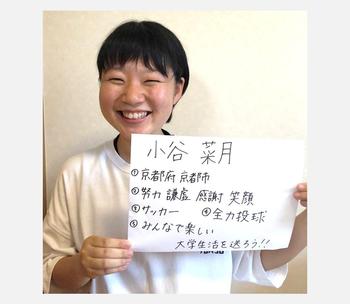 小谷 菜月
①京都府 京都市
②努力 謙虚 感謝 笑顔
③サッカー ④全力投球
⑤みんなで楽しい
大学生活を送ろう!!